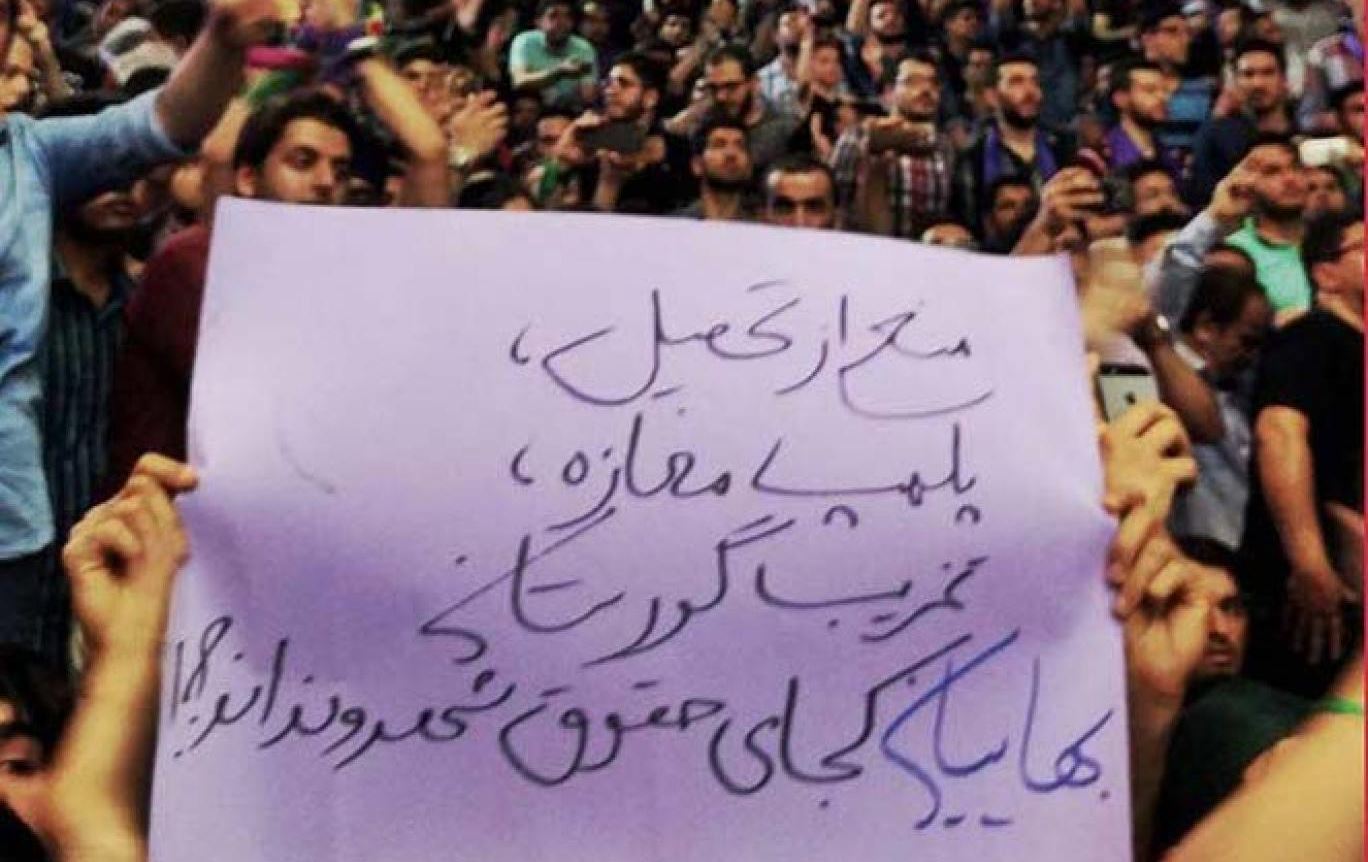 منع از تحصیل،
پلمپ مغازه،
تخریب گورستان
بهاییان کجای حقوق شهروندند اند؟!